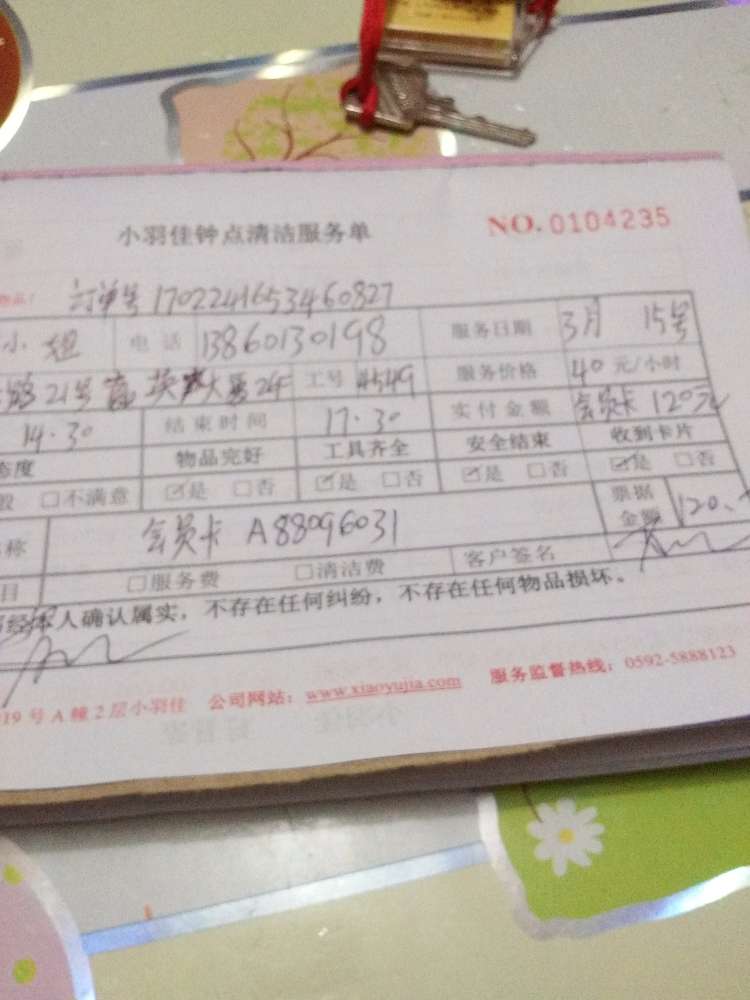 小羽佳钟点清洁服务单 NO. 0104235
订单号 1702241653460827
小姐 电话 13860130198 服务日期 3月 15号
路21号 大厦24F 工号 4549 服务价格 40 元/小时
14.30 结束时间 17.30 实付金额 会员卡 120元
态度 物品完好 工具齐全 安全结束 收到卡片
般 □不满意 ☑是 □否 ☑是 □否 ☑是 □否 ☑是 □否
称 会员卡 A88096031 票据金额 120.
目 □服务费 □清洁费 客户签名
经 人确认属实，不存在任何纠纷，不存在任何物品损坏。
19号A幢2层小羽佳 公司网站：www.xiaoyujia.com 服务监督热线：0592-5888123